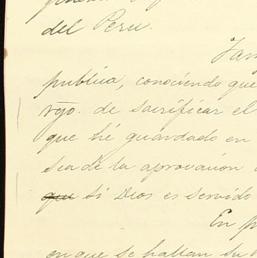 del Peru.
Tam
publica, conociendo que
rgo. de sacrificar el
que hé guardado en
sea de la aprovacion
que si Dios es servido
En p
en que se hallan su